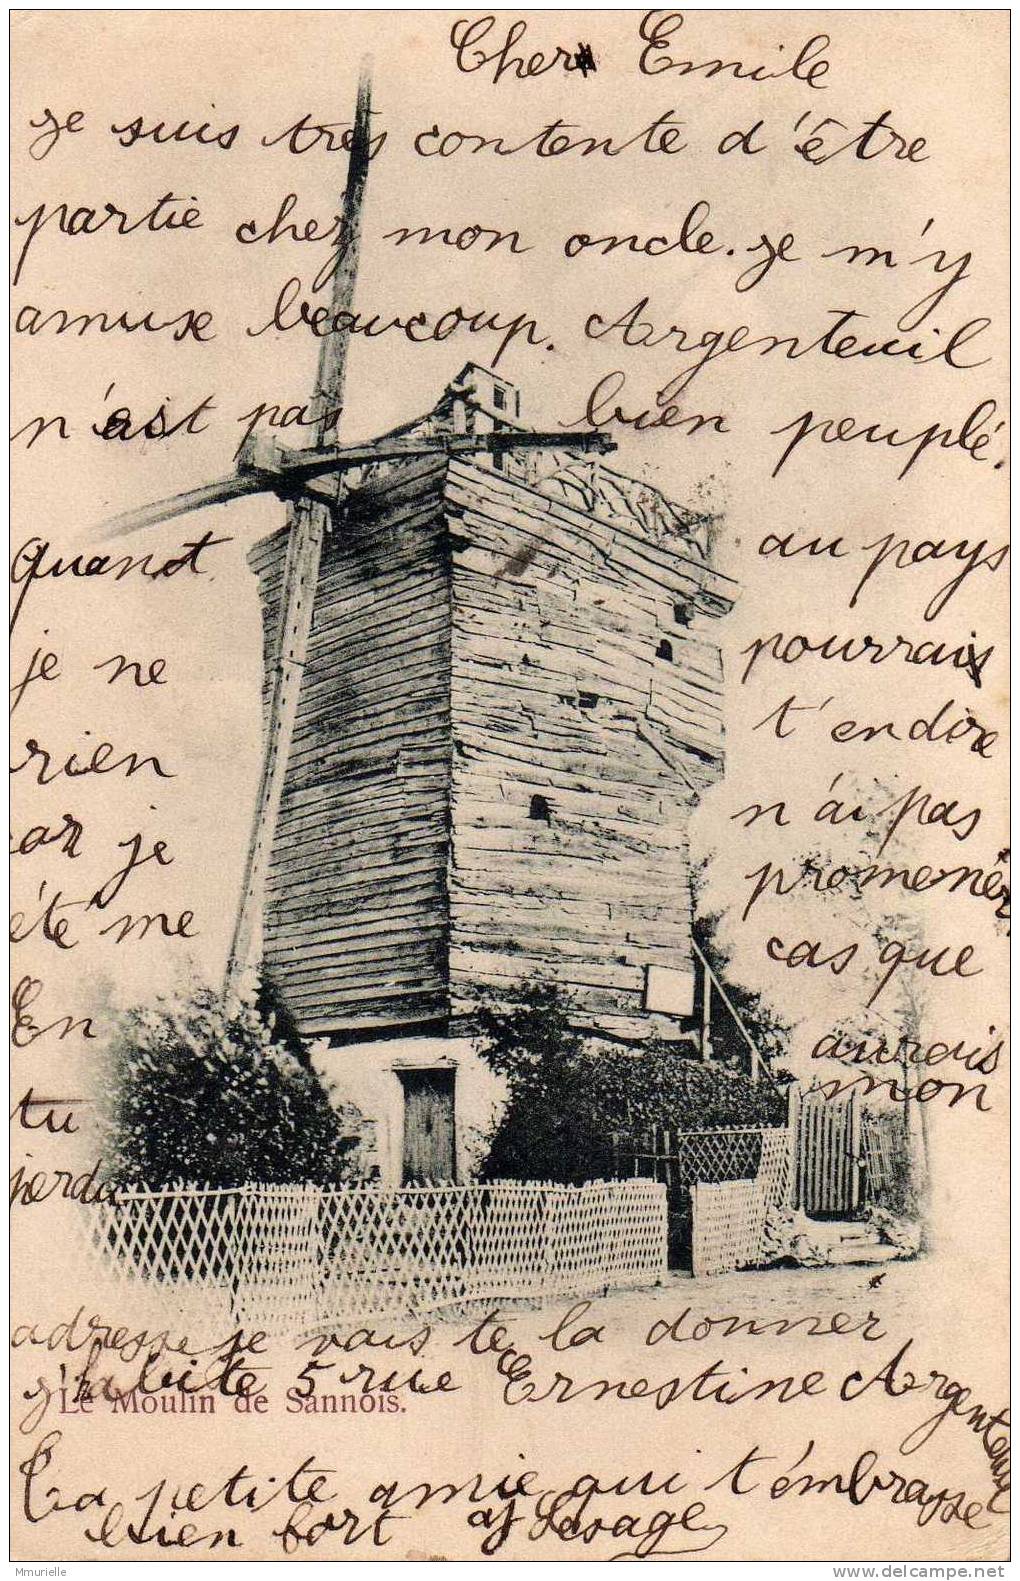 Cher Emile
je suis très contente d'être
partie chez mon oncle. je m'y
amuse beaucoup. Argenteuil
n'est pas bien peuplé.
Quand au pays
je ne pourrais
rien t'en dire
car je n'ai pas
été me promenér
En cas que
tu aurais
perdu mon
adresse je vais te la donner
j'habite 5 rue Ernestine Argenteuil
Le Moulin de Sannois.
Ta petite amie qui t'émbrasse
bien fort Lesage
Mmurielle
www.delcampe.net